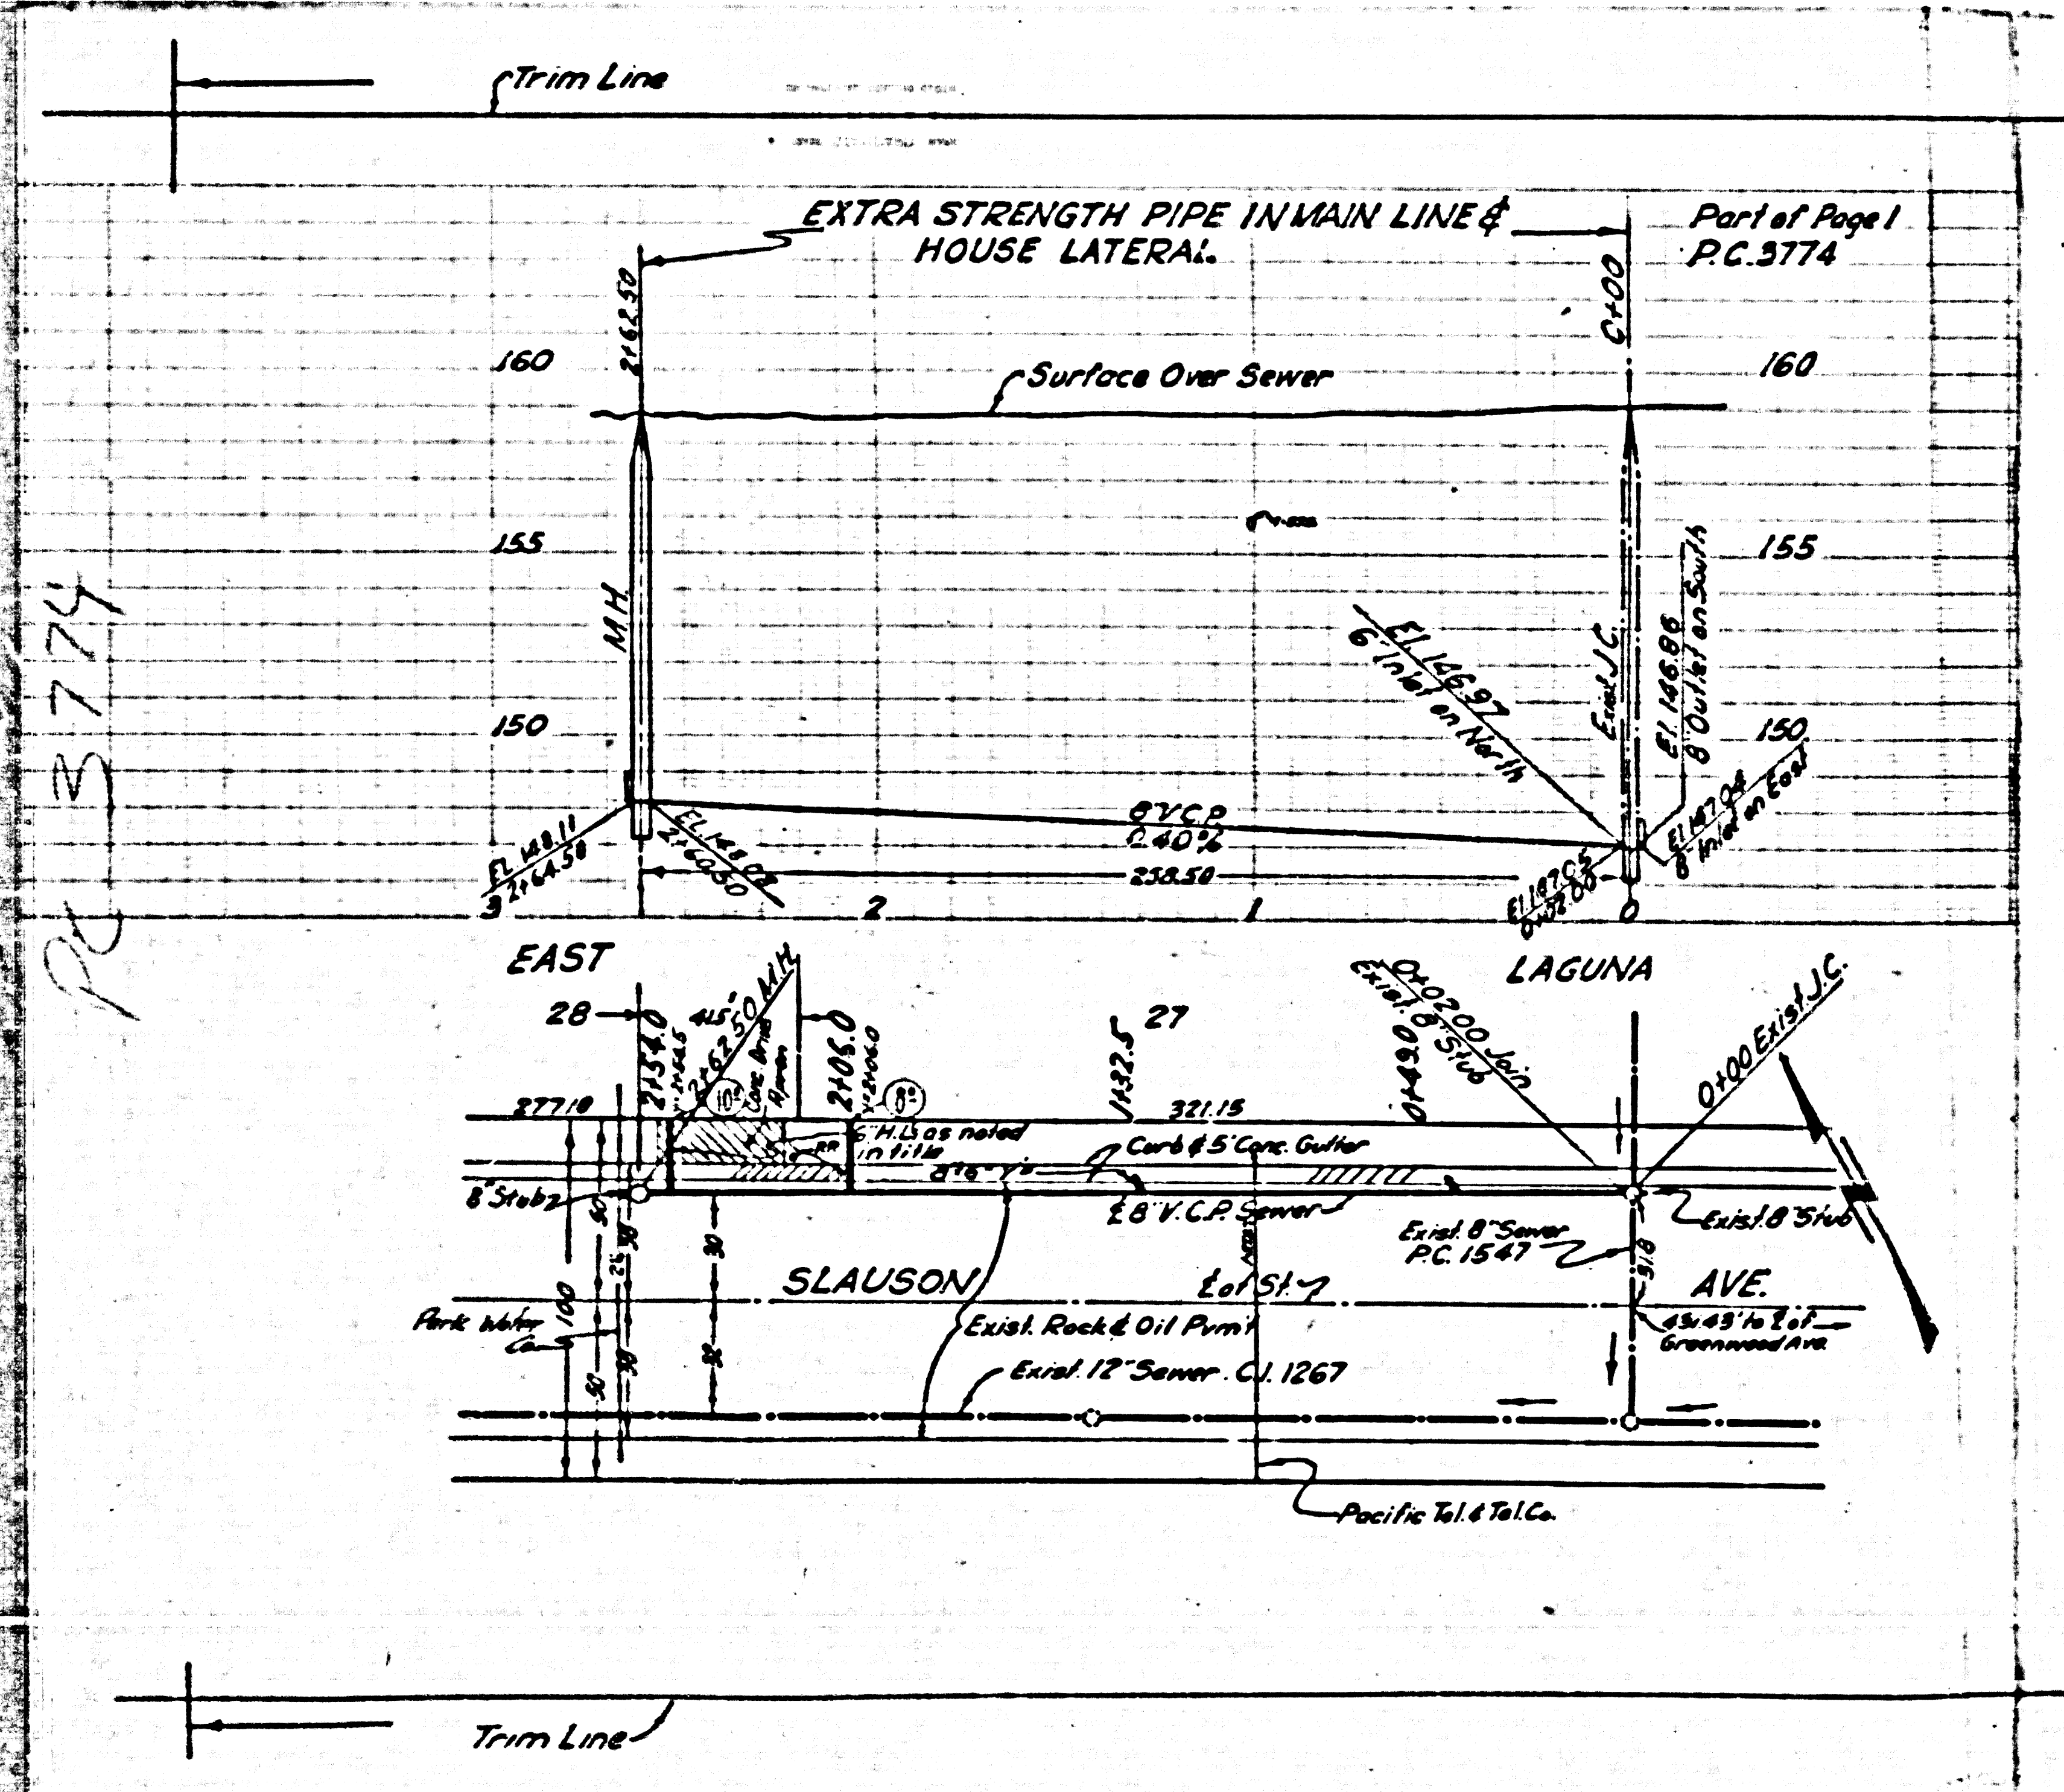 Trim Line
EXTRA STRENGTH PIPE IN MAIN LINE &
HOUSE LATERAL.
Part of Page 1
P.C. 3774
2+62.50
0+00
160
160
Surface Over Sewer
155
155
M.H.
Exist. J.C.
El. 146.97
6" Inlet on North
El. 146.86
8" Outlet on South
150
150
El. 147.04
8" Inlet on East
8" V.C.P.
0.40%
258.50
EL. 148.11
2+64.50
EL. 148.09
2+60.50
El. 147.05
0+02.00
3
2
1
0
PC 3774
EAST
LAGUNA
28
41.5'
27
2+62.50 M.H.
2+54.0
2+06.0
Y-2+06.0
1+32.5
0+49.0
0+02.00 Join
Exist. 8" Stub
0+00 Exist. J.C.
Conc. Drive
Apron
277.10
321.15
6" H.L.s as noted
in title
Curb & 5' Conc. Gutter
8" Stub
℄ 8" V.C.P. Sewer
Exist. 8" Sewer
P.C. 1547
Exist. 8" Stub
31.8
50
30
30
24
100
SLAUSON
℄ of St.
AVE.
Park Water
Co.
Exist. Rock & Oil Pvmt
431.43' to ℄ of
Greenwood Ave.
50
30
Exist. 12" Sewer C.I. 1267
Pacific Tel. & Tel. Co.
Trim Line